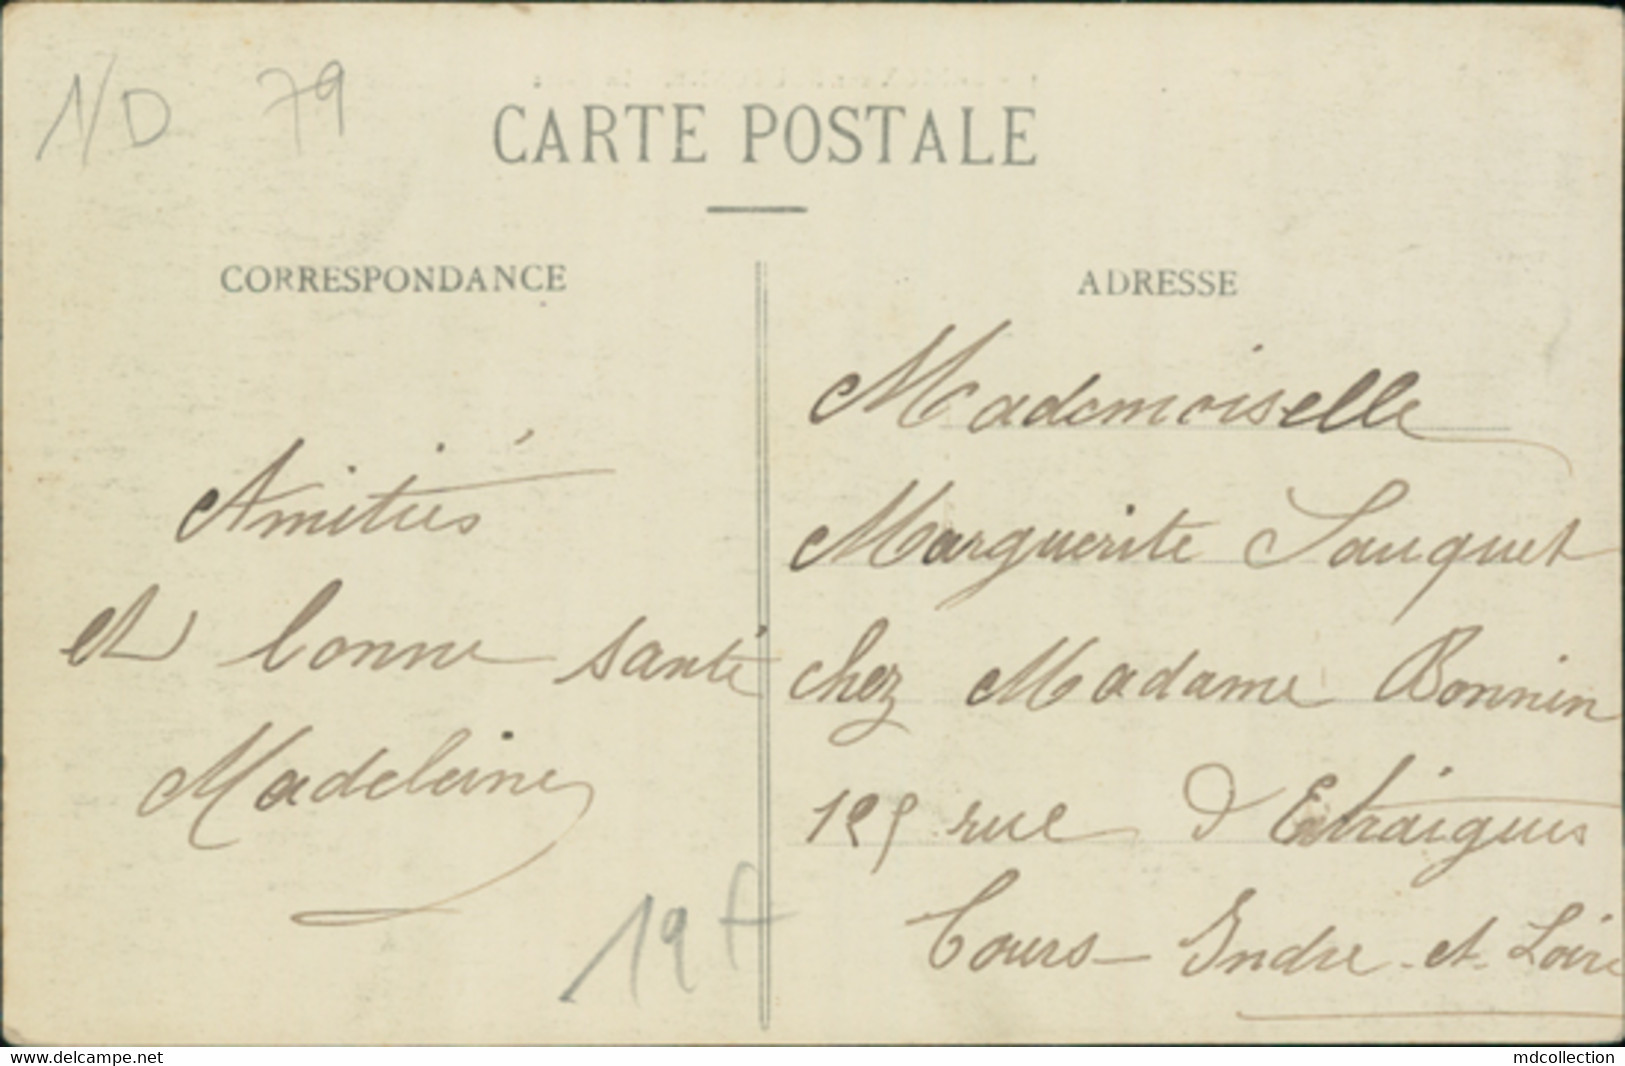 1/D 79
CARTE POSTALE
CORRESPONDANCE
Amitiés
et bonne santé
Madeleine
19 f
ADRESSE
Mademoiselle
Marguerite Sauquet
chez Madame Bonnin
rue d'Entraigues
Tours - Indre - et - Loire
www.delcampe.net
mdcollection